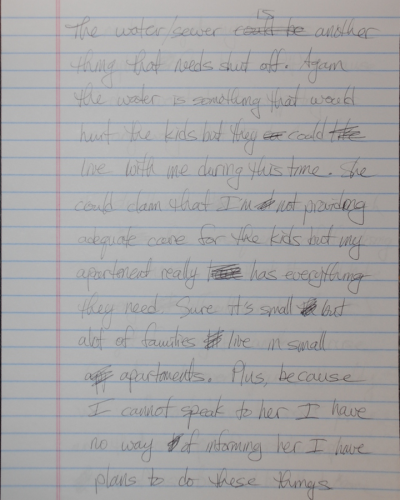 The water/sewer is another
thing that needs shut off. Again
the water is something that would
hurt the kids but they could
live with me during this time. She
could claim that I'm not providing
adequate care for the kids but my
apartment really has everything
they need. Sure it's small but
alot of families live in small
apartments. Plus, because
I cannot speak to her I have
no way of informing her I have
plans to do these things